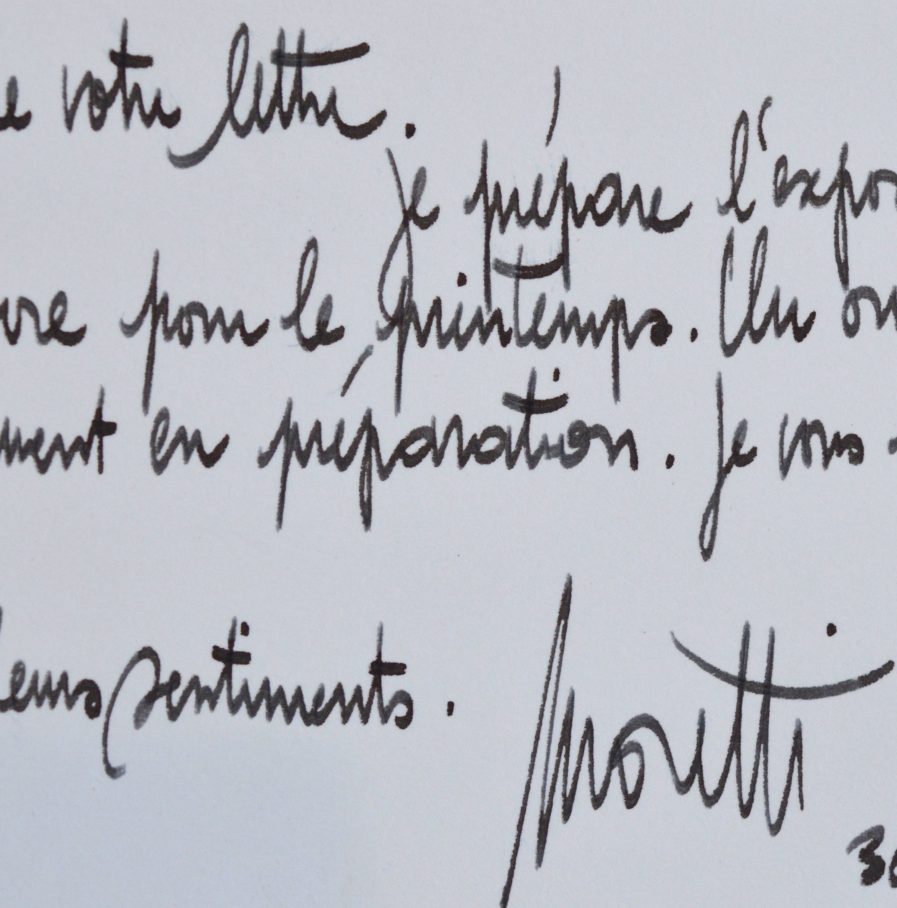 e votre lettre.
je prépare l'expos
vre pour le printemps. Un ou
ment en préparation. je vous
leurs sentiments.
Moretti
30